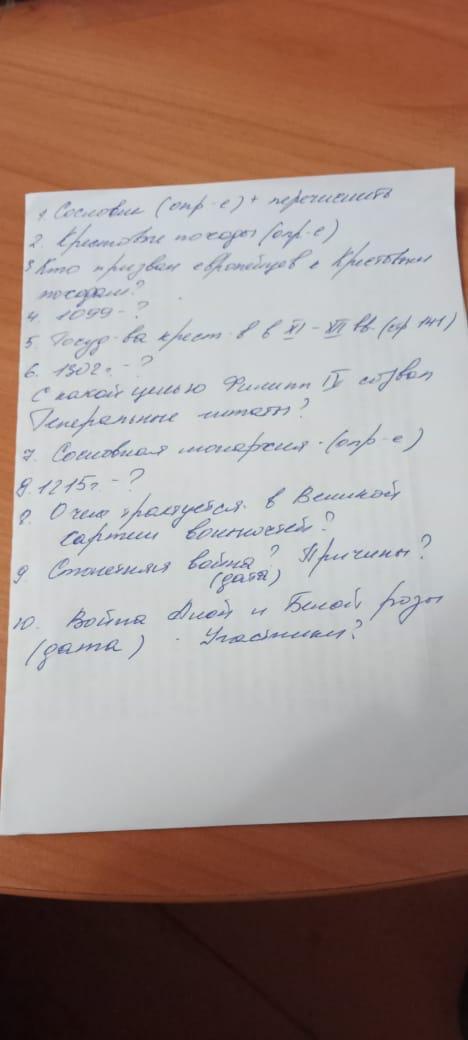 1. Сословие (опр-е) + перечислить
2. Крестовые походы (опр-е)
3 Кто призвал европейцев к Крестовым
походам?
4. 1099 - ?
5. Госуд-ва крест-в в XI - XII вв. (стр 141)
6. 1302г. - ?
С какой целью Филипп IV созвал
Генеральные штаты?
7. Сословная монархия - (опр-е)
8. 1215г. - ?
О чем трактуется в Великой
хартии вольностей?
9. Столетняя война? Причины?
(дата)
10. Война Алой и Белой розы
(дата) . Участники?